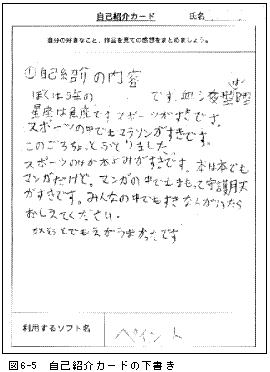 自己紹介カード 氏名
自分の好きなこと、作品を見ての感想をまとめましょう。
①自己紹介の内容
ぼくは5年の です。血シ夜型は
星座は 座です スポーツがすきです。
スポーツの中でもマラソンがすきです。
このごろちょっとふとりました
スポーツのほか本よみがすきです。本は本でも
マンガだけど。マンガの中でもまもって守護月天
がすきです。みんなの中でもすきな人がいたら
おしえてください。
がとってもえがうまかったです
利用するソフト名 ペイント
図6-5 自己紹介カードの下書き